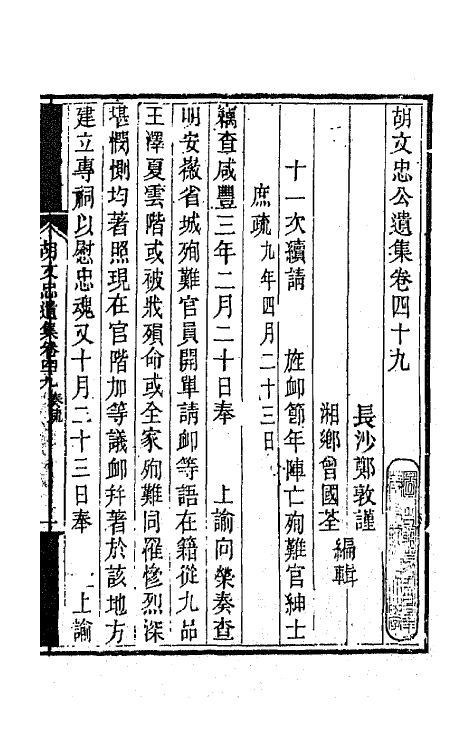 胡文忠公遺集卷四十九
長沙鄭敦謹
湘鄉曾國荃
編輯
十一次續請　旌卹節年陣亡殉難官紳士
庶疏九年四月二十三日
竊查咸豐三年二月二十日奉　上諭向榮奏查
明安徽省城殉難官員開單請卹等語在籍從九品
王澤夏雲階或被戕殞命或全家殉難同罹慘烈深
堪憫惻均著照現在官階加等議卹幷著於該地方
建立專祠以慰忠魂又十月二十三日奉　上諭
胡文忠遺集卷四九　奏疏　一